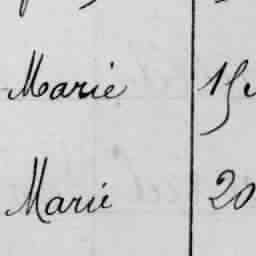 Marie 15
Marie 20